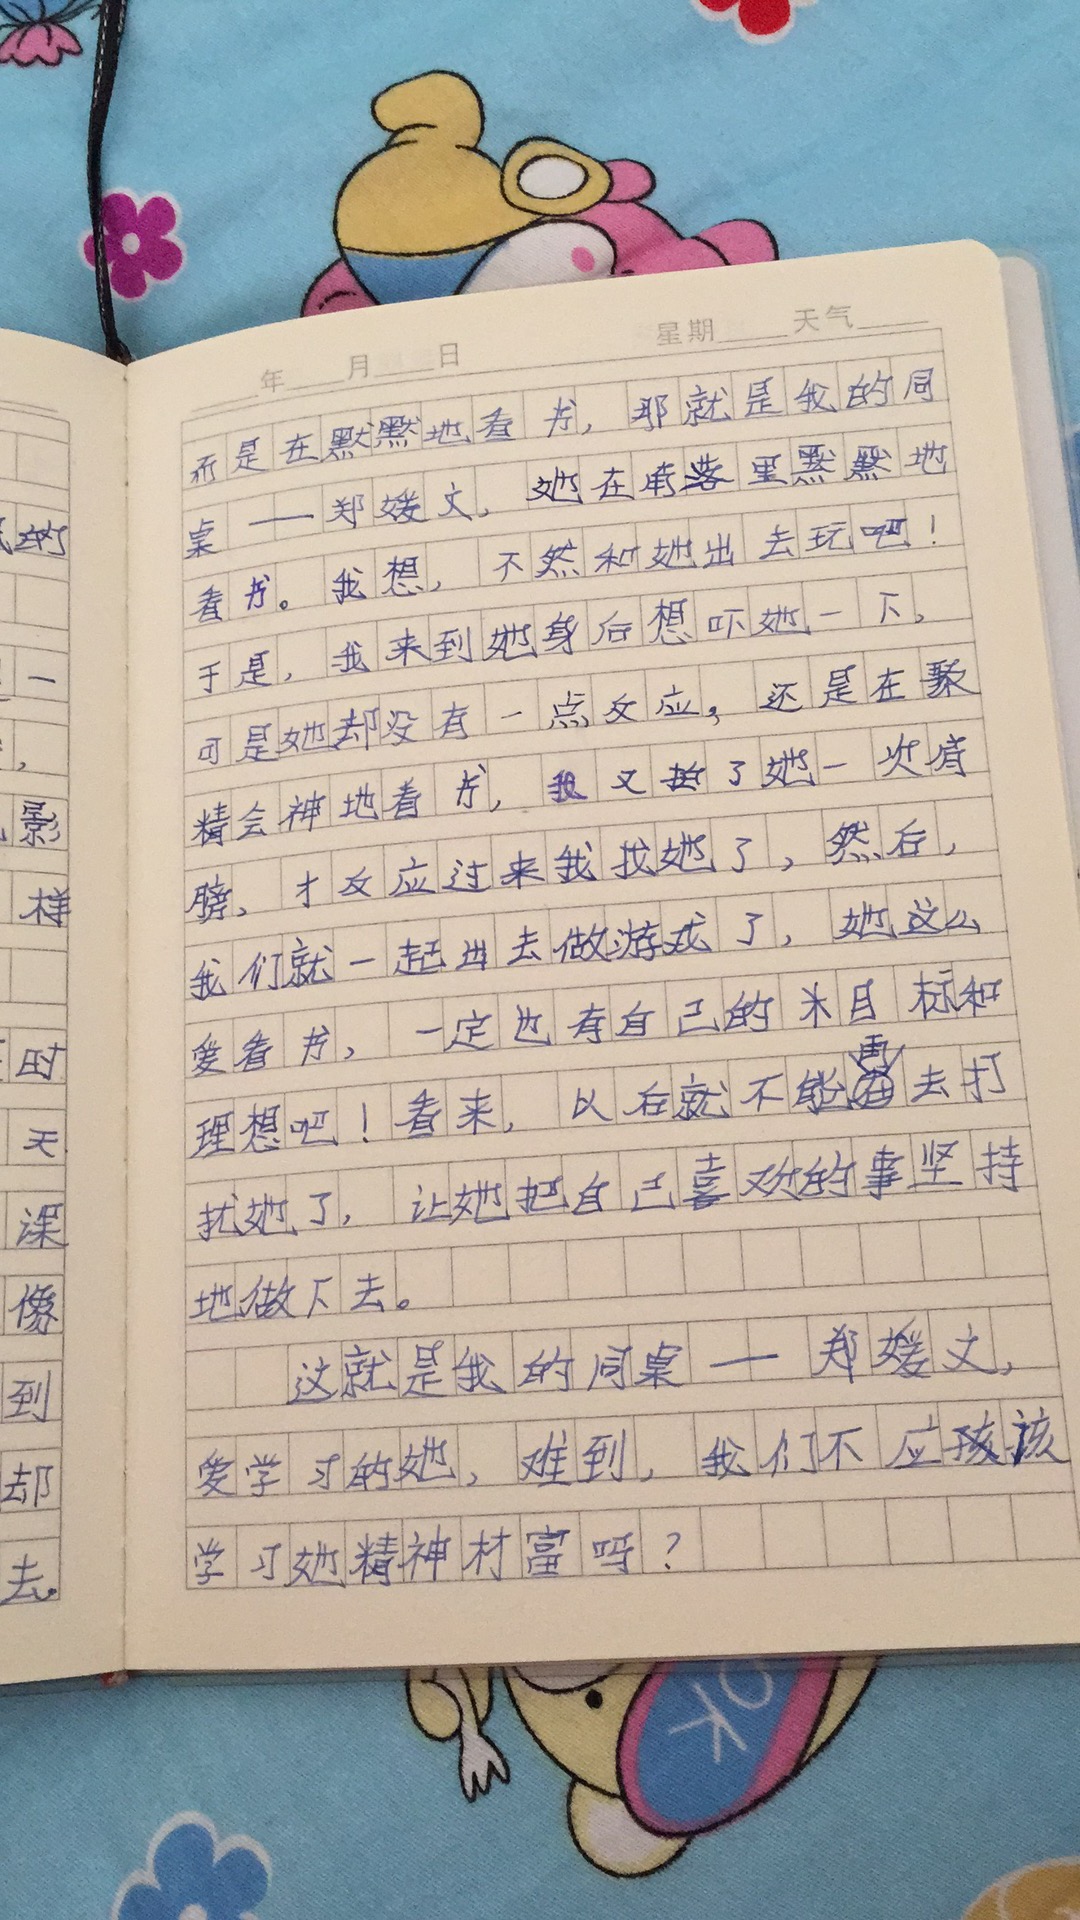 年 月 日 星期 天气
而是在默默地看书,那就是我的同
桌——郑媛文,她在角落里默默地
看书。我想,不然和她出去玩吧!
于是,我来到她身后想吓她一下,
可是她却没有一点反应,还是在聚
精会神地看书,我又拍了她一次肩
膀,才反应过来我找她了,然后,
我们就一起出去做游戏了,她这么
爱看书,一定也有自己的木目标和
理想吧!看来,以后就不能再去打
扰她了,让她把自己喜欢的事坚持
地做下去。
这就是我的同桌——郑媛文,
爱学习的她,难到,我们不应孩该
学习她精神材富吗?
的
一
,
影
样
时
天
课
像
到
却
去。
OK